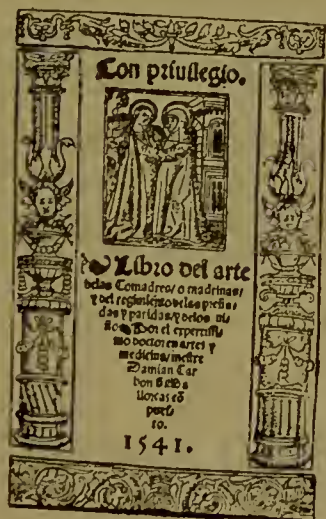 Con priuilegio.
Libro del arte
delas Comadres/ o madrinas/
y del regimiẽto delas preña
das y paridas/ y delos ni
ños Por el expertissi
mo doctor en artes y
medicina/ maestre
Damian Car
bon
1541.